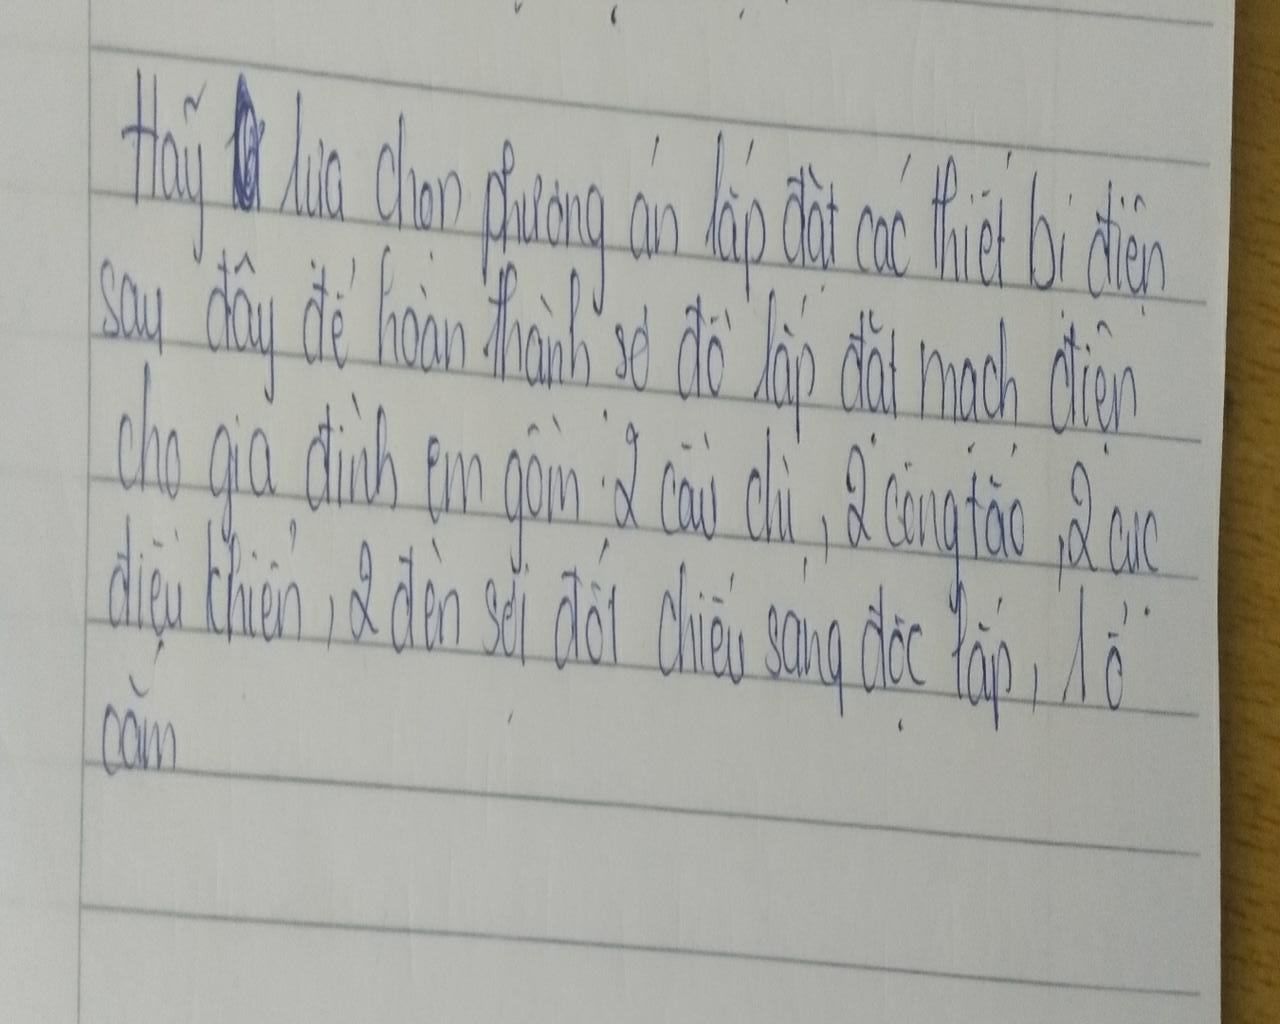 Hãy lựa chọn phương án lắp đặt các thiết bị điện
sau đây để hoàn thành sơ đồ lắp đặt mạch điện
cho gia đình em gồm : 2 cầu chì, 2 công tắc, 2 cực
điều khiển, 2 đèn sợi đốt chiếu sáng độc lập, 1 ổ
cắm